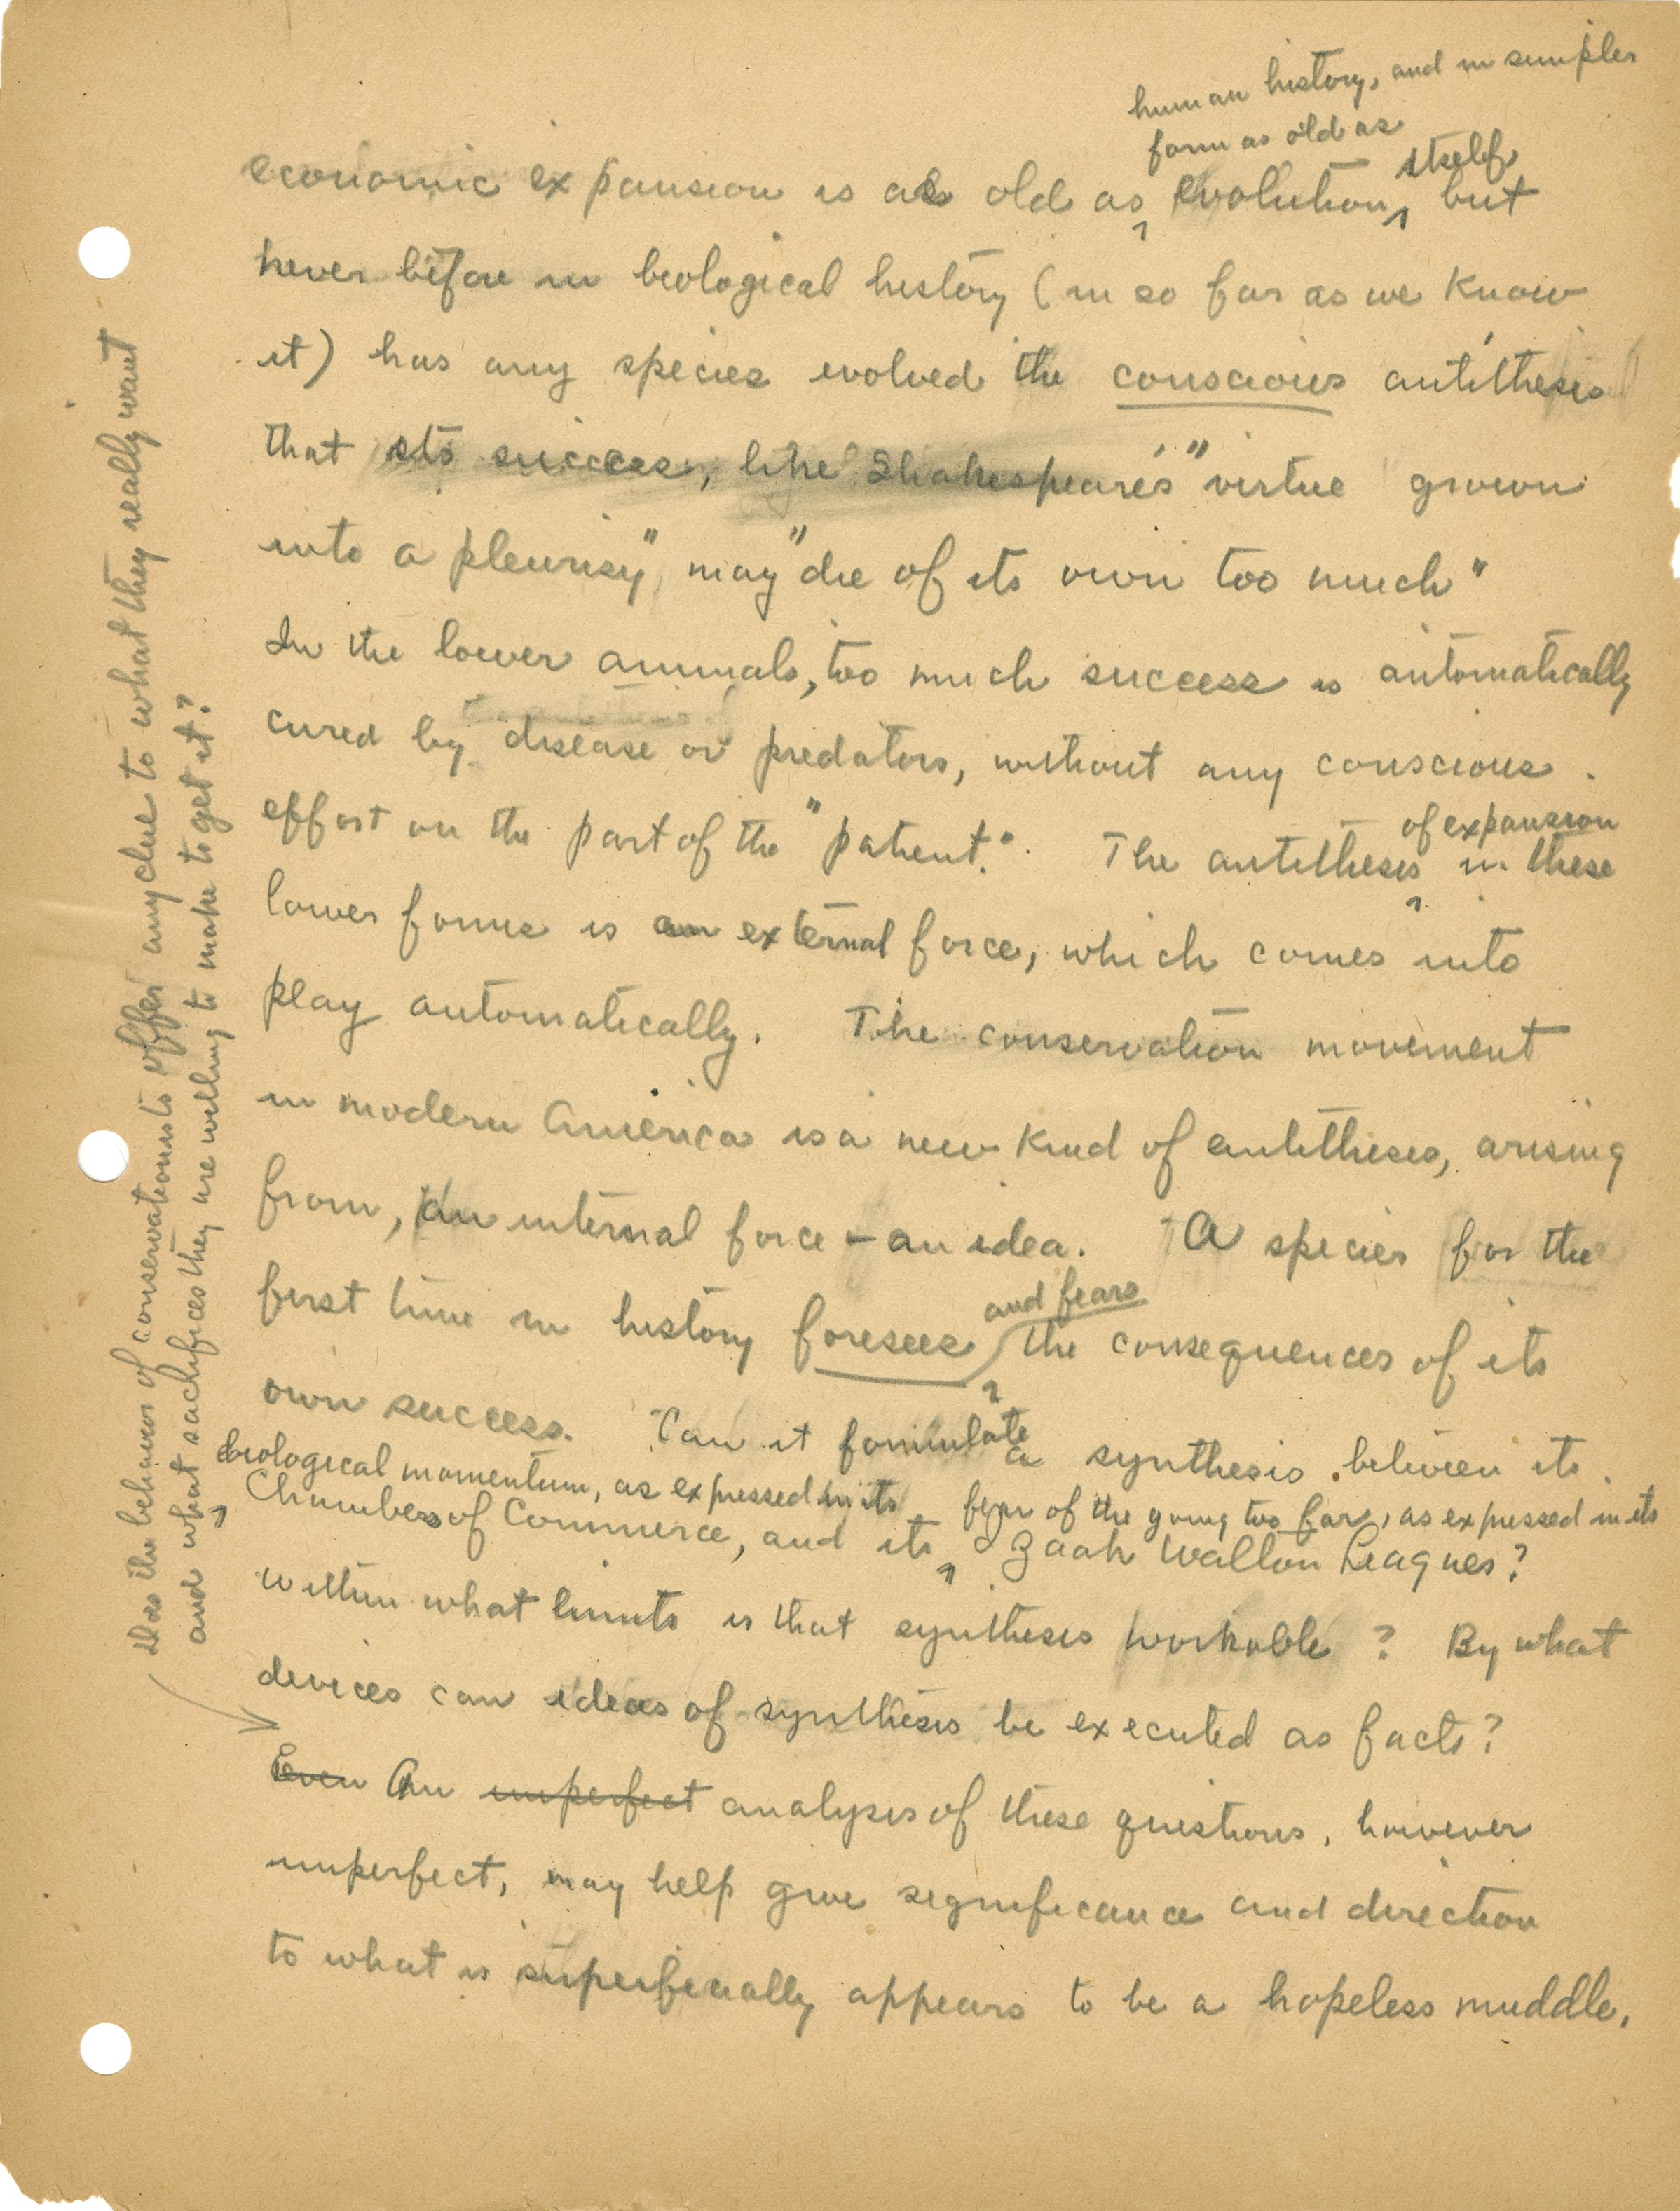 human history, and in simpler
form as old as
economic expansion is as old as evolution itself, but
never before in biological history (in so far as we know
it) has any species evolved the conscious antithesis
that its success, like Shakespeare's "virtue grown
into a pleurisy" may "die of its own too much"
In the lower animals, too much success is automatically
cured by disease or predators, without any conscious
effort on the part of the "patient." The antithesis of expansion in these
lower forms is an external force, which comes into
play automatically. The conservation movement
in modern America is a new kind of antithesis, arising
from, an internal force – an idea. A species for the
first time in history foresees and fears the consequences of its
own success. Can it formulate a synthesis between its
biological momentum, as expressed in its fear of the going too far, as expressed in its
Chambers of Commerce, and its Izaak Wallton Leagues?
Within what limits is that synthesis workable? By what
devices can ideas of synthesis be executed as facts?
Even An imperfect analysis of these questions, however
imperfect, may help give significance and direction
to what is superficially appears to be a hopeless muddle.
Does the behavior of conservationists offer any clue to what they really want
and what sacrifices they are willing to make to get it?